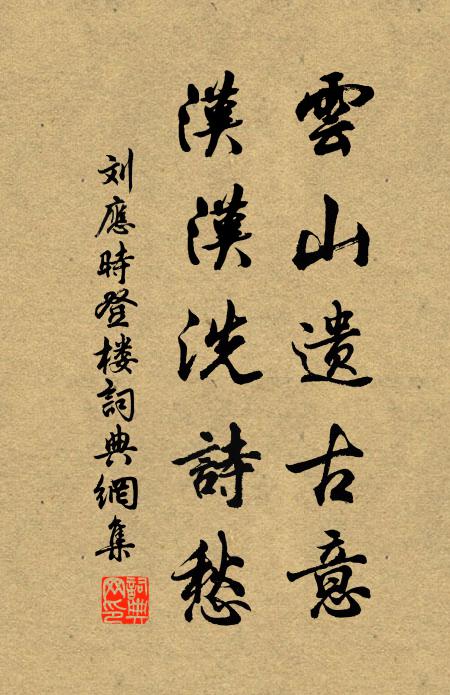 雲山遗古意
漠漠洗詩愁
刘應時登楼詞典網集
詞典网印